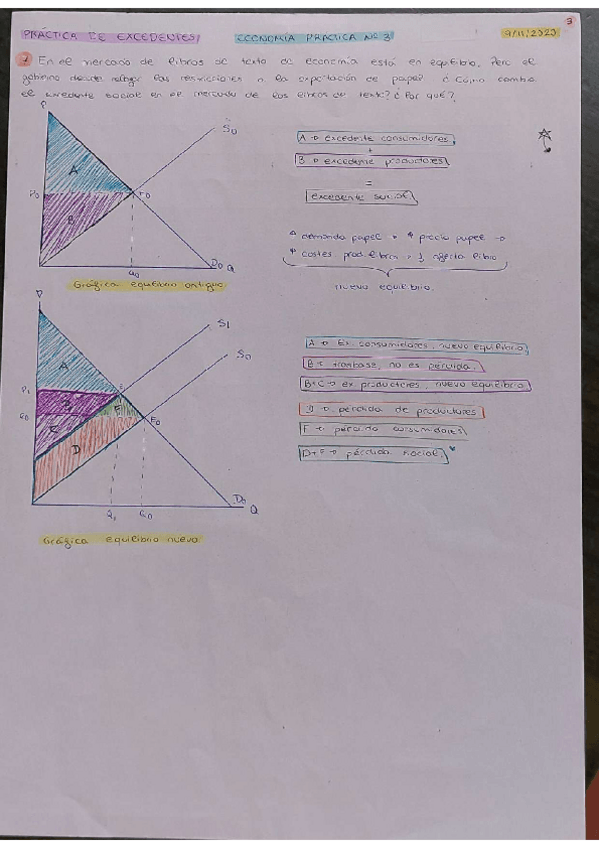 3
PRÁCTICA DE EXCEDENTES ECONOMÍA PRÁCTICA Nº 3 9/11/2020
1 En el mercado de libros de texto de economía está en equilibrio. Pero el
gobierno decide las restricciones a la exportación de papel ¿Cómo cambia
el excedente social en el mercado de los libros de texto? ¿Por qué?
P
S0
A
P0
E0
B
Q0
D0 Q
Gráfica equilibrio antiguo
A → excedente consumidores
+
B → excedente productores
=
excedente social
demanda papel → precio papel →
costes prod. libro → oferta libro
nuevo equilibrio
P
S1
S0
A
P1
B
F
E0
C
D
Q1
Q0
D0
Q
Gráfica equilibrio nuevo
A → Ex. consumidores, nuevo equilibrio
B: trasbase, no es pérdida.
B+C → ex productores, nuevo equilibrio
D → pérdida de productores
F → pérdida consumidores
D+F → pérdida social